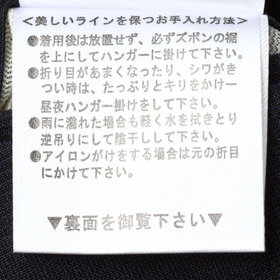 <美しいラインを保つお手入れ方法>
●着用後は放置せず、必ずズボンの裾
を上にしてハンガーに掛けて下さい。
●折り目があまくなったり、シワがき
つい時は、たっぷりとキリをかけ一
昼夜ハンガー掛けをして下さい。
●雨に濡れた場合も軽く水を拭きとり
逆吊りにして陰干しして下さい。
●アイロンがけをする場合は元の折目
にかけて下さい。
▼裏面を御覧下さい▼